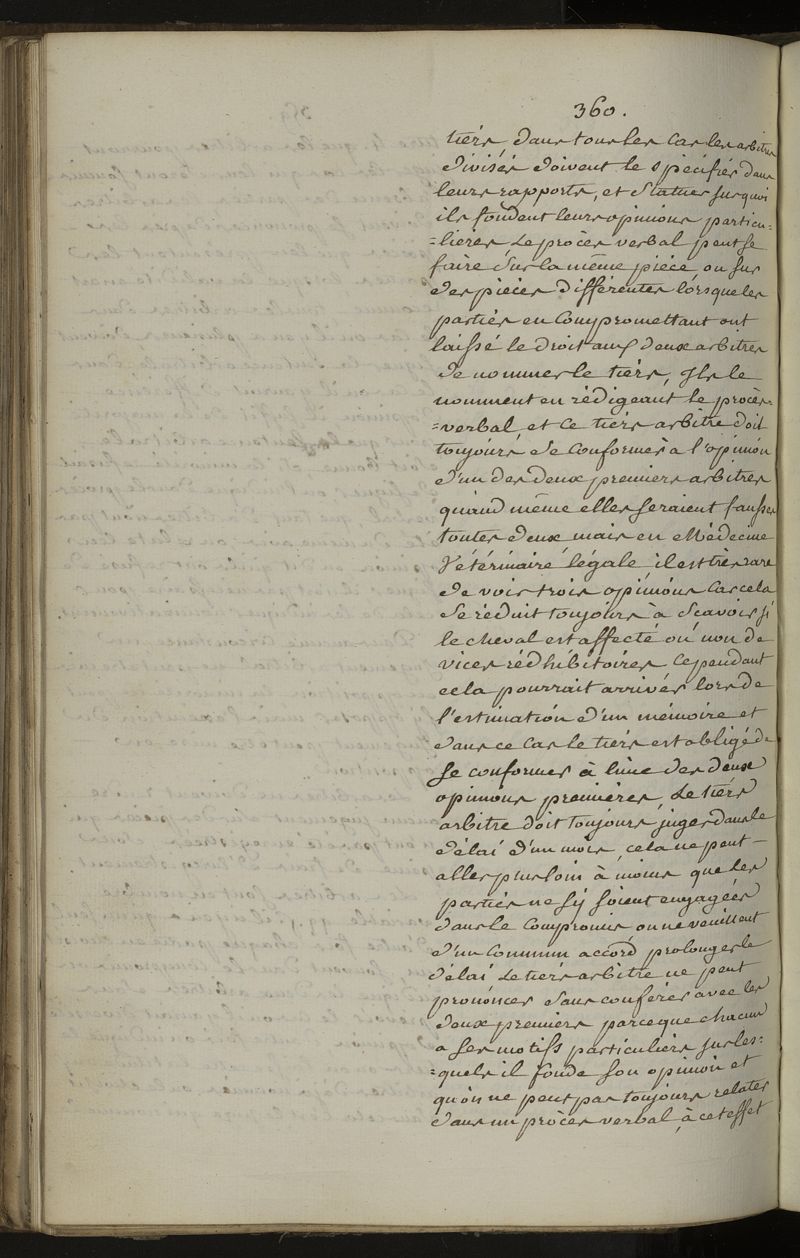 360.
tiérs, dans tous les cas les arbitres
divisés doivent le spécifiér dans
leurs rapports, et statuer sur quoi
ils fondent leurs opinions particu=
=lieres Le procès verbal peut se
faire sur la même piéce, ou sur
des piéces différentes lorsque les
partiés en compromettant ont
laissé le droit aux deux arbitres
de nommer le tiérs, Ils le
nomment en rédigeant le procès=
=verbal, et ce tiérs arbitre doit
toujours se conformer à l'opinion
d'un des deux premiers arbitres
quand même elles seraient fausses
toutes deux mais en Médecine
Vétérinaire légale, il est très rare
de voir trois opinions car cela
se réduit toujours à scavoir si
le cheval est affecté ou non de
vices rédhibitoires cependant
cela pourrait arrivér lors de
l'estimation d'un mémoire et
dans ce cas le tiérs est obligé de
se conformer à l'une des deux
opinions premières, Le tiérs
arbitre doit toujours juger dans le
délai d'un mois, cela ne peut
aller plus loin à moins que les
partiés ne s'y soient engagées
dans le compromis ou ne veuillent
d'un commun accord prolonger le
délai Le tiérs arbitre ne peut
prononcer sans conférer avec les
deux premiers parceque chacun
a ses motifs particuliers sur les=
=quels il fonde son opinion et
qu'on ne peut pas toujours relater
dans un procès verbal, à cet effet